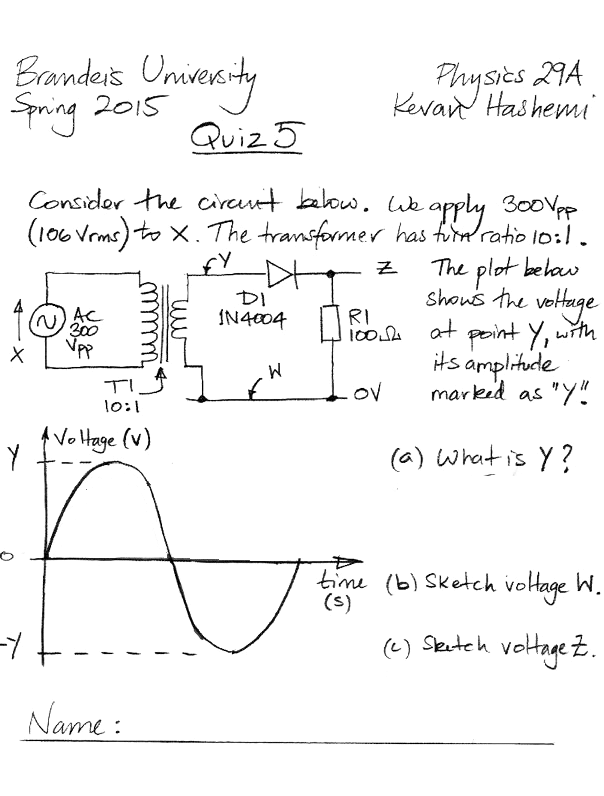 Brandeis University
Spring 2015
Physics 29A
Kevan Hashemi
Quiz 5
Consider the circuit below. We apply 300Vpp
(106 Vrms) to X. The transformer has turn ratio 10:1.
The plot below
shows the voltage
at point Y, with
its amplitude
marked as "Y".
X
AC
300
Vpp
T1
10:1
Y
D1
1N4004
Z
R1
100Ω
W
0V
Voltage (V)
Y
0
-Y
time
(s)
(a) What is Y?
(b) Sketch voltage W.
(c) Sketch voltage Z.
Name: